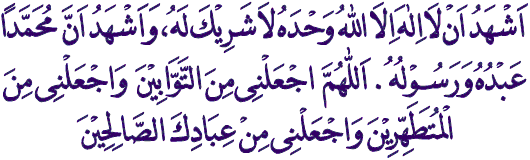 اَشْهَدُ اَنْ لَا اِلٰهَ اِلَّا اللهُ وَحْدَهُ لَا شَرِيْكَ لَهُ، وَاَشْهَدُ اَنَّ مُحَمَّدًا
عَبْدُهُ وَرَسُوْلُهُ. اَللّٰهُمَّ اجْعَلْنِى مِنَ التَّوَّابِيْنَ وَاجْعَلْنِى مِنَ
الْمُتَطَهِّرِيْنَ وَاجْعَلْنِى مِنْ عِبَادِكَ الصَّالِحِيْنَ